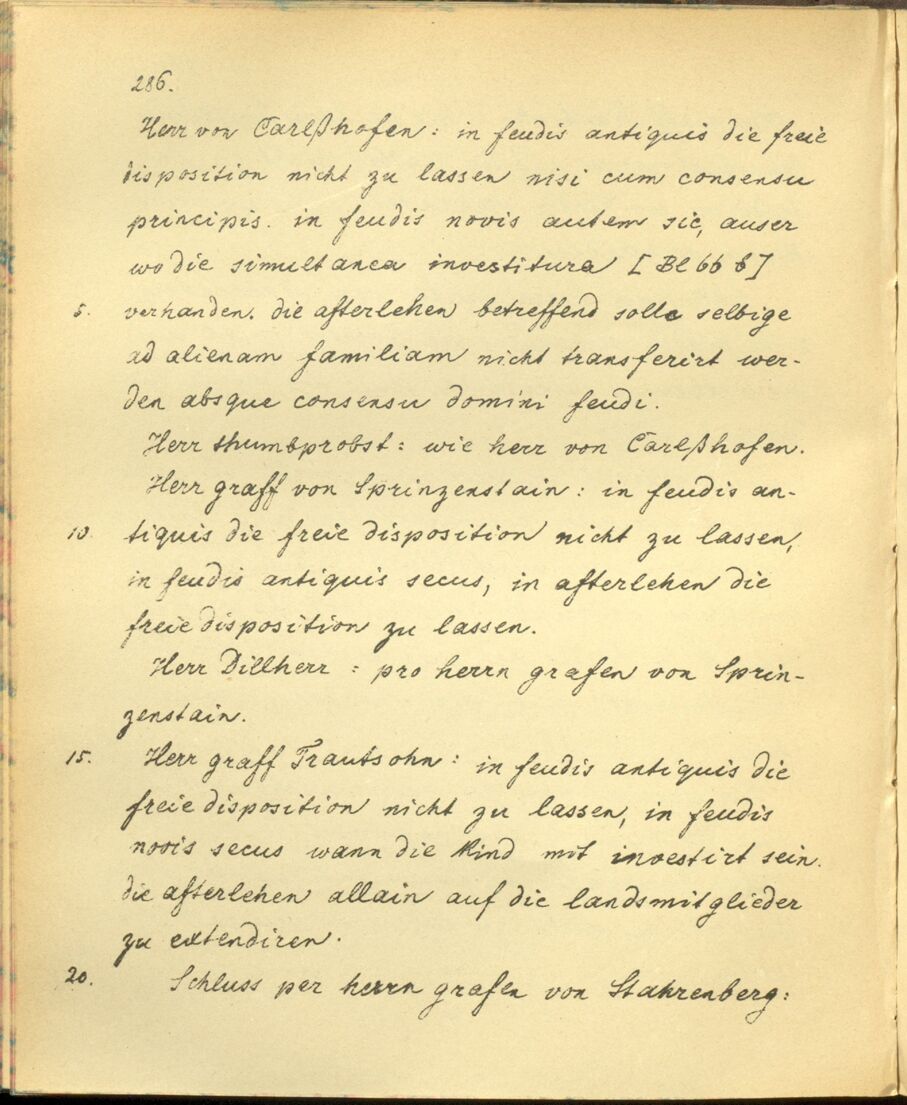 286.
Herr von Carlßhofen: in feudis antiquis die freie
disposition nicht zu lassen nisi cum consensu
principis. in feudis novis autem sic, auser
wo die simultanea investitura [Bl 66 b]
5. verhanden. die afterlehen betreffend solle selbige
ad alienam familiam nicht transferirt wer-
den absque consensu domini feudi.
Herr thumbprobst: wie herr von Carlßhofen.
Herr graff von Sprinzenstain: in feudis an-
10. tiquis die freie disposition nicht zu lassen,
in feudis antiquis secus, in afterlehen die
freie disposition zu lassen.
Herr Dillherr: pro herrn grafen von Sprin-
zenstain.
15. Herr graff Trautsohn: in feudis antiquis die
freie disposition nicht zu lassen, in feudis
novis secus wann die kind mit investirt sein.
die afterlehen allain auf die landsmitglieder
zu extendiren.
20. Schluss per herrn grafen von Stahrenberg: